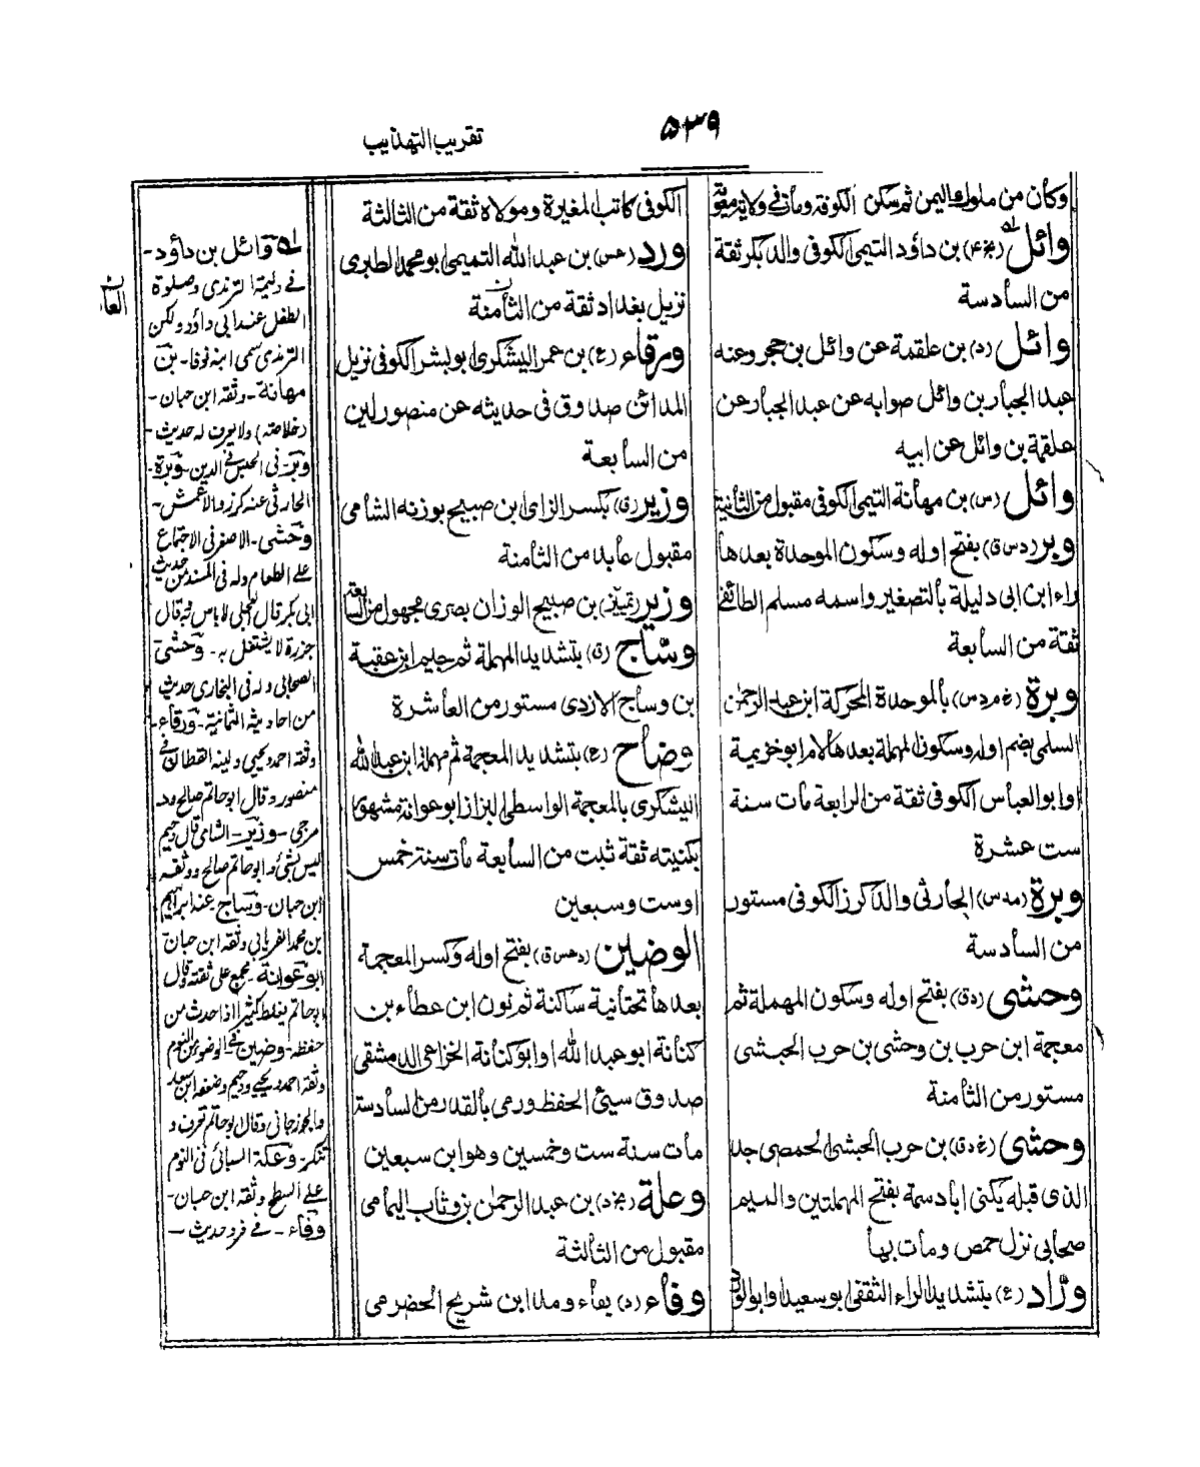 ۵۳۹
تقريب التهذيب
وكان من ملوك اليمن ثم سكن الكوفة ومات في ولاية معوية
وائل (بخ ۴) بن داؤد التيمى الكوفى والد بكر ثقة
من السادسة
وائل (د) بن علقمة عن وائل بن حجر وعنه
عبد الجبار بن وائل صوابه عن عبد الجبار عن
علقمة بن وائل عن ابيه
وائل (س) بن مهانة التيمى الكوفى مقبول من الثانية
وبر (د س ق) بفتح اوله وسكون الموحدة بعدها
راء ابن ابى دليلة بالتصغير واسمه مسلم الطائفى
ثقة من السابعة
وبرة (خ م د س) بالموحدة المحركة ابن عبد الرحمٰن
السلمى بضم اوله وسكون المهملة بعدها لام ابو خزيمة
او ابو العباس الكوفى ثقة من الرابعة مات سنة
ست عشرة
وبرة (مد س) الحارثى والد كرز الكوفى مستور
من السادسة
وحشى (د ق) بفتح اوله وسكون المهملة ثم
معجمة ابن حرب بن وحشى بن حرب الحبشى
مستور من الثامنة
وحشى (خ د ق) بن حرب الحبشى الحمصى جد
الذى قبله يكنى ابا دسمة بفتح المهملتين والميم
صحابى نزل حمص ومات بها
ورّاد (ع) بتشديد الراء الثقفى ابو سعيد او ابو الورد
الكوفى كاتب المغيرة ومولاه ثقة من الثالثة
ورد (عس) بن عبد الله التميمى ابو محمد الطابرى
نزيل بغداد ثقة من الثامنة
ورقاء (ع) بن عمر اليشكرى ابو بشر الكوفى نزيل
المدائن صدوق فى حديثه عن منصور لين
من السابعة
وزير (ق) بكسر الزاى ابن صبيح بوزنه الشامى
مقبول عابد من الثامنة
وزير (تمييز) بن صبيح الوزان بصرى مجهول من السابعة
وسّاج (ق) بتشديد المهملة ثم جيم ابن عقبة
بن وساج الازدى مستور من العاشرة
وضاح (ع) بتشديد المعجمة ثم مهملة ابن عبد الله
اليشكرى بالمعجمة الواسطى البزاز ابو عوانة مشهور
بكنيته ثقة ثبت من السابعة مات سنة خمس
او ست وسبعين
الوضين (د عس ق) بفتح اوله وكسر المعجمة
بعدها تحتانية ساكنة ثم نون ابن عطاء بن
كنانة ابو عبد الله او ابو كنانة الخزاعى الدمشقى
صدوق سيئ الحفظ ورمى بالقدر من السادسة
مات سنة ست وخمسين وهو ابن سبعين
وعلة (بخ د) بن عبد الرحمٰن بن وثاب اليمامى
مقبول من الثالثة
وفاء (د) بفاء ومد ابن شريح الحضرمى
له وائل بن داؤد -
فى وليمة الترمذى وصلوة
الطفل عند ابى داؤد ولكن
الترمذى سمى ابنه نوفا - بن
مهانة - وثقه ابن حبان -
(خلاصه) ولا يعرف له حديث -
وبر - فى الحبس فى الدين - وبرة -
الحارثى عنه كرز والاعمش -
وحشى - الاصغر فى الاجتماع
على الطعام وله فى المسند من حديث
ابى بكر قال العجلى لا باس به قال
جزرة لا يشتغل به - وحشى
الصحابى وله فى البخارى حديث
من احاديثه الثمانية - ورقاء -
وثقه احمد ويحيى ولينه القطان فى
منصور وقال ابو حاتم صالح ود
مرجى - وزير - الشامى قال دحيم
ليس بشئ وابو حاتم صالح ووثقه
ابن حبان - وساج عنه ابراهيم
بن محمد الفريابى وثقه ابن حبان
ابو عوانة - مجمع على ثقته وقال
ابو حاتم يغلط كثيرا اذا حدث من
حفظه - وضين فى الوضوء من النوم
وثقه احمد ويحيى ودحيم وضعفه ابن سعد
والجوزجانى وقال ابو حاتم تعرف و
تنكر - وعلة السبائى فى النوم
على السطح وثقه ابن حبان -
وفاء - فى فرد حديث -